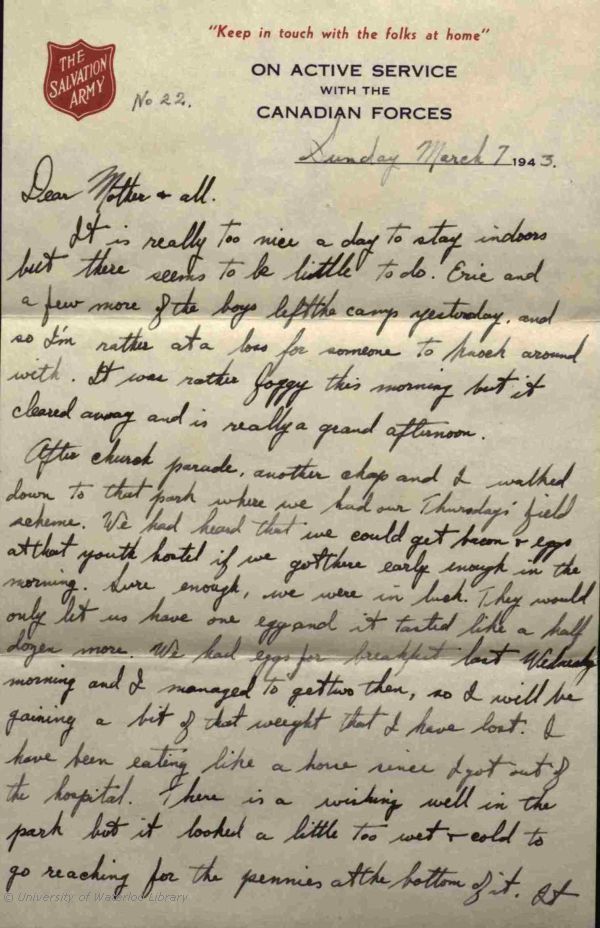 "Keep in touch with the folks at home"
THE
SALVATION
ARMY
No 22.
ON ACTIVE SERVICE
WITH THE
CANADIAN FORCES
Sunday March 7 1943.
Dear Mother & all.
It is really too nice a day to stay indoors
but there seems to be little to do. Eric and
a few more of the boys left the camp yesterday, and
so I'm rather at a loss for someone to knock around
with. It was rather foggy this morning but it
cleared away and is really a grand afternoon.
After church parade, another chap and I walked
down to that park where we had our Thursdays' field
scheme. We had heard that we could get bacon & eggs
at that youth hostel if we got there early enough in the
morning. Sure enough, we were in luck. They would
only let us have one egg and it tasted like a half
dozen more. We had eggs for breakfast last Wednesday
morning and I managed to get two then, so I will be
gaining a bit of that weight that I have lost. I
have been eating like a horse since I got out of
the hospital. There is a wishing well in the
park but it looked a little too wet & cold to
go reaching for the pennies at the bottom of it. At
© University of Waterloo Library